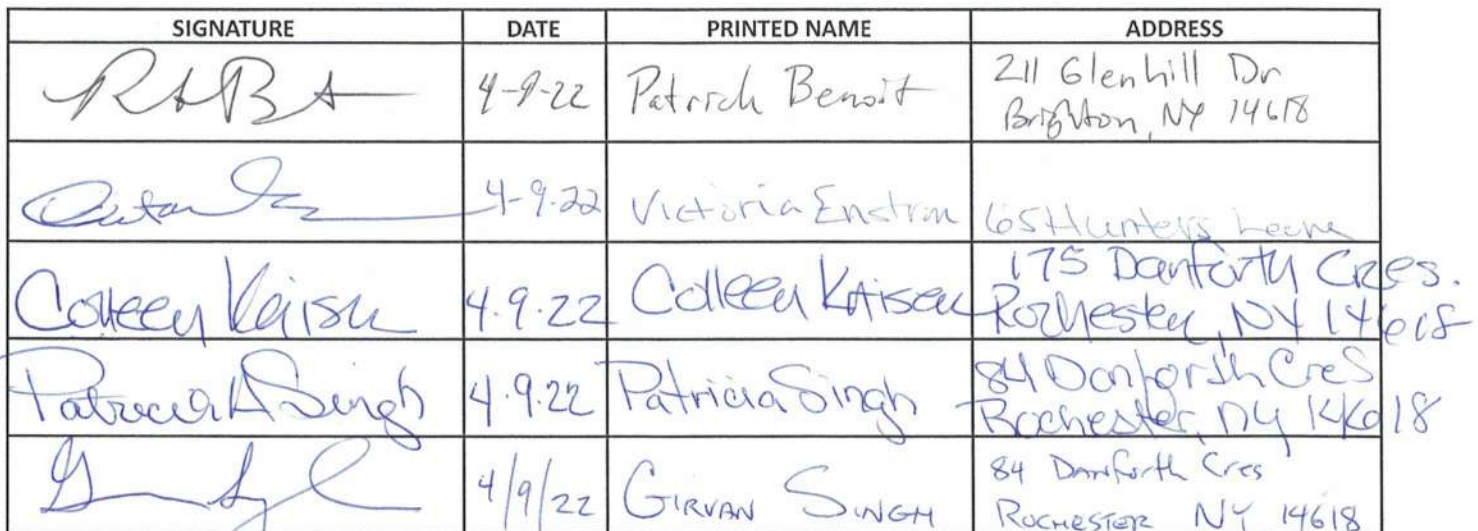 SIGNATURE DATE PRINTED NAME ADDRESS
4-9-22 Patrick Benoit 211 Glenhill Dr
Brighton, NY 14618
4-9-22 Victoria Enstrom 65 Hunters
Colleen Kaiser 4.9.22 Colleen Kaiser 175 Danforth Cres.
Rochester, NY 14618
Patricia A Singh 4.9.22 Patricia Singh 84 Danforth Cres
Rochester, NY 14618
4/9/22 GIRVAN SINGH 84 Danforth Cres
ROCHESTER NY 14618